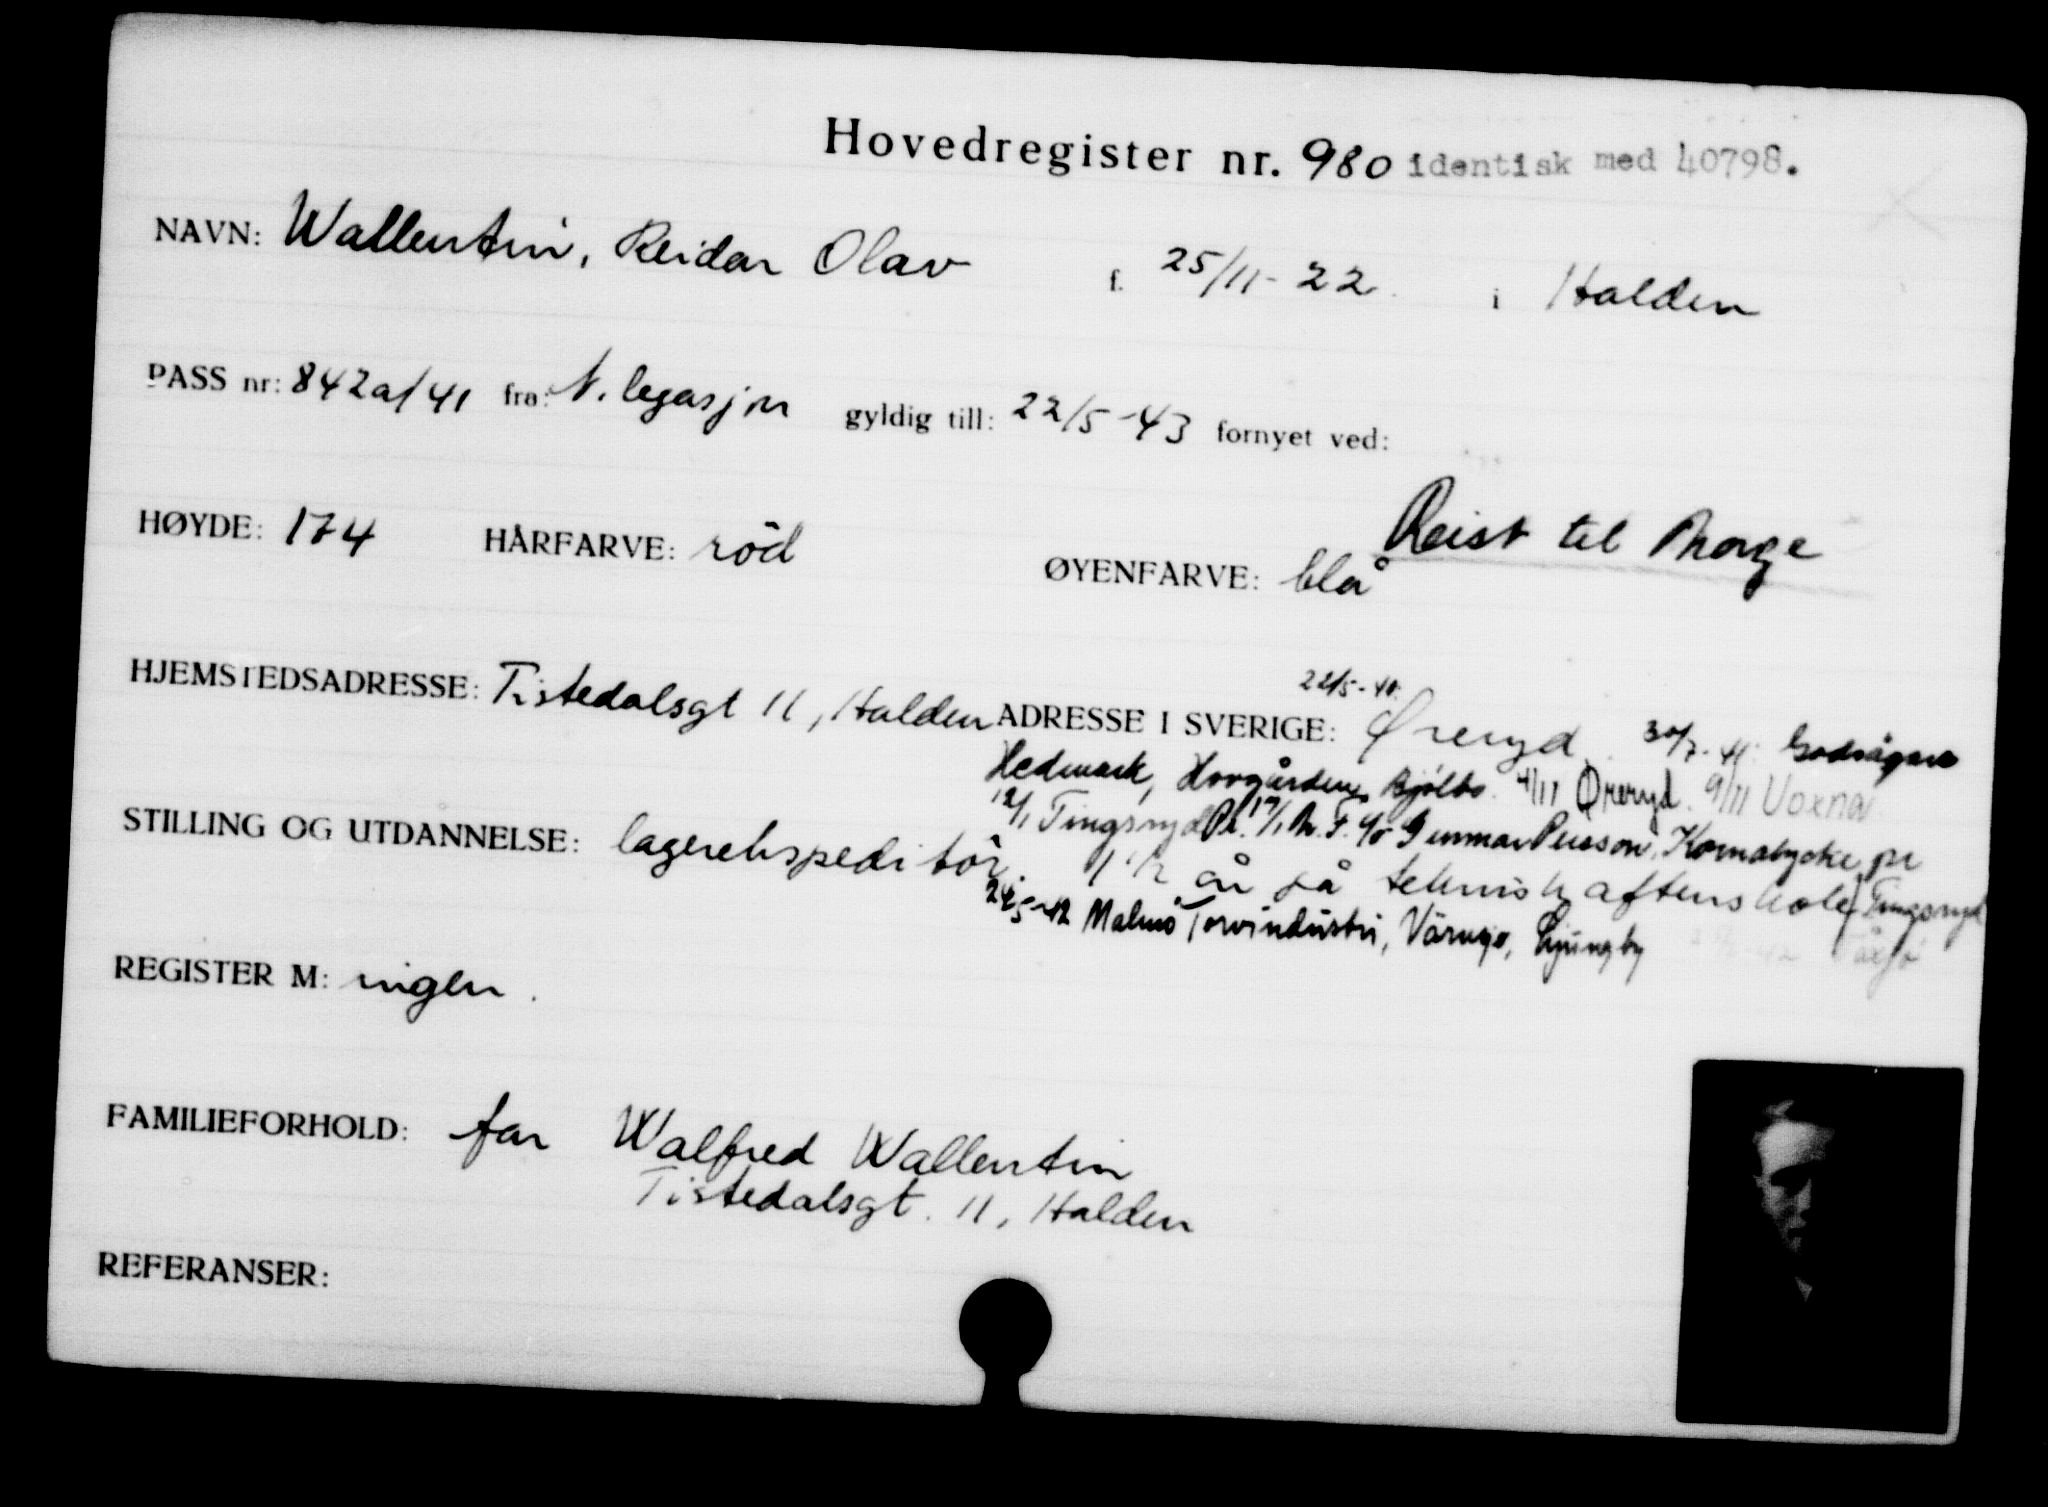 Hovedregister nr. 980 identisk med 40798.
NAVN: Wallentin, Reidar Olav f. 25/11-22. i Halden
PASS nr: 842a/41 fra: N. legasjon gyldig till: 22/5-43 fornyet ved:
Reist til Norge
HØYDE: 174 HÅRFARVE: röd ØYENFARVE: blå
22/5-41:
HJEMSTEDSADRESSE: Tistedalsgt 11, Halden ADRESSE I SVERIGE: Öreryd. 30/7-41: Godsägare
Hedmark, Hovgården, Bjälbo. 4/11 Öreryd. 9/11 Voxna
12/1 Tingsryd 17/1 c/o Gunnar Persson, Kornalycke, pr
Tingsryd
STILLING OG UTDANNELSE: lagerekspeditör. 1 1/2 år på teknisk aftenskole
24/5-42 Malmö Torvindustri, Värnsjö, Ljungby
REGISTER M: ingen.
FAMILIEFORHOLD: far Walfred Wallentin
Tistedalsgt. 11, Halden
REFERANSER: